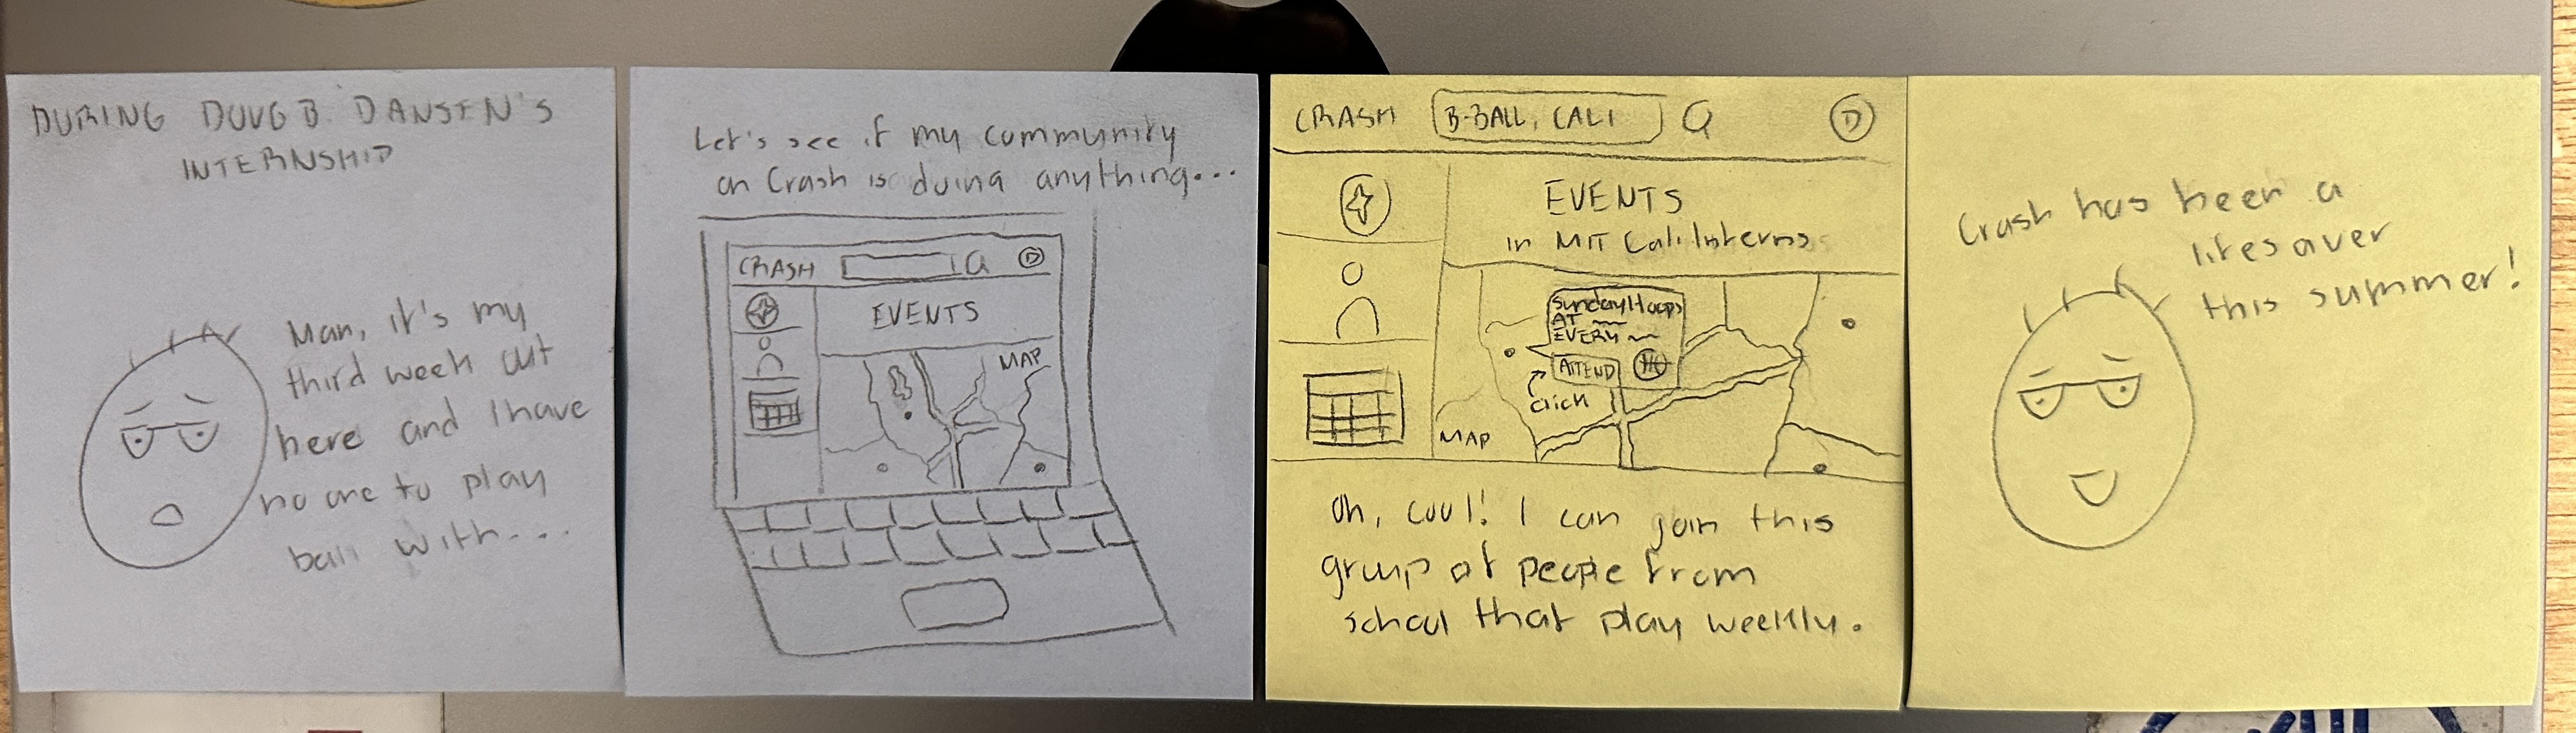 DURING DOUG B. DANSEN'S
INTERNSHIP
Man, it's my
third week out
here and I have
no one to play
ball with...
Let's see if my community
on Crash is doing anything...
CRASH
D
EVENTS
MAP
CRASH
B-BALL, CALI
D
EVENTS
in MIT Cali Interns
Sunday Hoops
AT
EVERY
ATTEND
click
MAP
Oh, cool! I can join this
group of people from
school that play weekly.
Crash has been a
lifesaver
this summer!